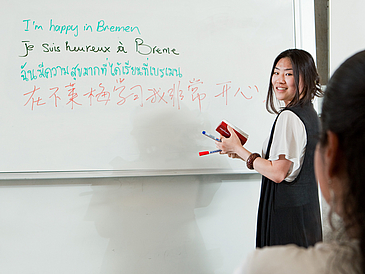 I'm happy in Bremen
Je suis heureux à Breme
ฉันมีความสุขมากที่ได้เรียนที่เบรเมน
在不莱梅学习我非常开心